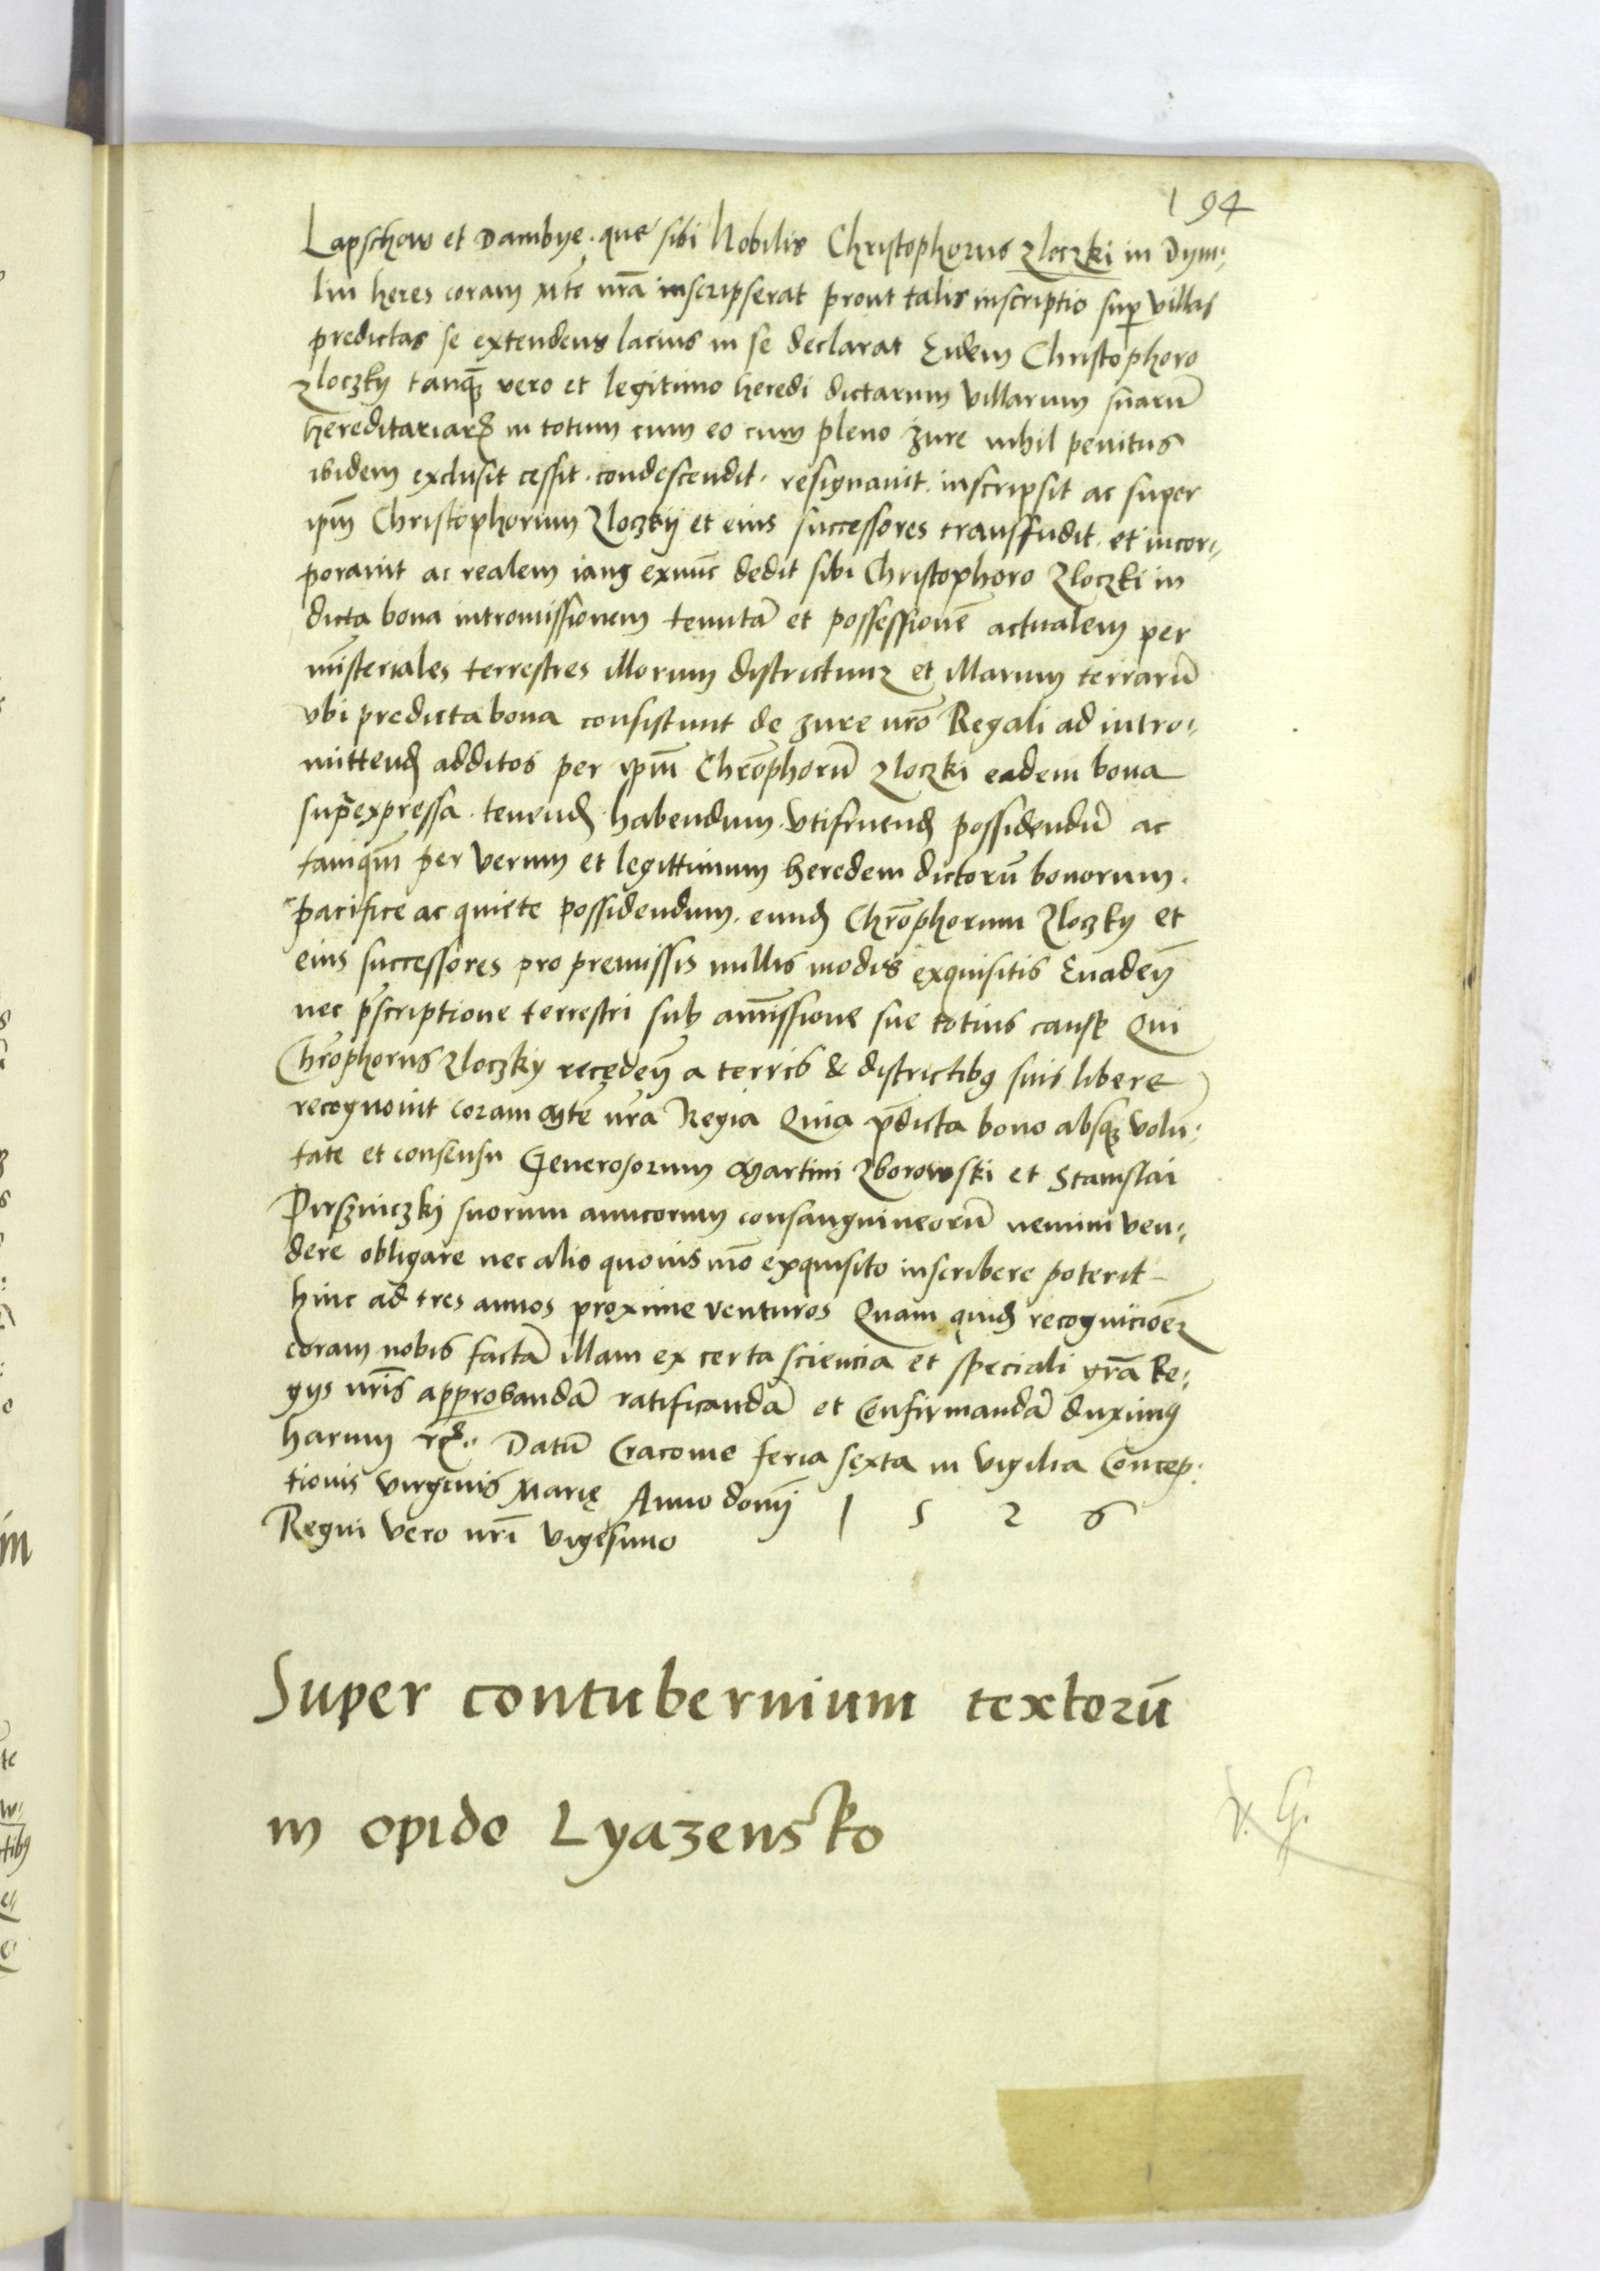 194
Lapschow et Dambye. que sibi Nobilis Christophorus Zloczki in Dym:
lin heres coram Mte nrã inscripserat prout talis inscriptio sup villas
predictas se extendens lacius in se declarat Eidem Christophoro
Zloczky tanq̃ vero et legitimo heredi dictarum villarum suarũ
hereditariarꝝ in totum cum eo cum pleno Jure nihil penitus
ibidem exclusit cessit. condescendit. resignavit. inscripsit ac super
ipm̃ Christophorum Zloczkij et eius successores transfudit. et incor:
poravit ac realem iang exnũc dedit sibi Christophoro Zloczki in
dicta bona intromissionem tenutã et possessionẽ actualem per
mĩsteriales terrestres illorum districtuum et illarum terrarũ
ubi predicta bona consistunt de Jure nrõ Regali ad intro:
mittend additos per ipm̃ Chrõphorũ Zloczki eadem bona
supraexpressa. tenend. habendum. utifruend possidendũ ac
tanq̃m per verum et legittimum heredem dictorũ bonorum.
pacifice ac quiete possidendum. eund Chrõphorum Zloczky et
eius successores pro premissis nullis modis exquisitis Evadeñ
nec pr̃scriptione terrestri sub amĩssione sue totius cause Qui
Chrõphorus Zloczky recedeñ a terris & districtibꝰ suis libere
recognovit coram Mte nr̃a Regia Quia pr̃dicta bona absqꝫ volũ:
tate et consensu Generosorum Martini Zborowski et Stanislai
Pirszniczky suorum amicorum consanguineorũ nemini ven:
dere obligare nec alio quovis mõ exquisito inscribere poterit
hinc ad tres annos proxime venturos Quam quid recognicioẽm
coram nobis factã illam ex certa sciencia et speciali grã Re:
gys nr̃is approbandã ratificandã et Confirmandã duximꝰ
harum rꝝ. Datũ Cracovie feria sexta in vigilia Concep:
tionis virginis Marię Anno domĩ 1 5 2 6
Regni vero nr̃i vigesimo
Super contubernium textorũ
in opido Lyazensko
v. G.